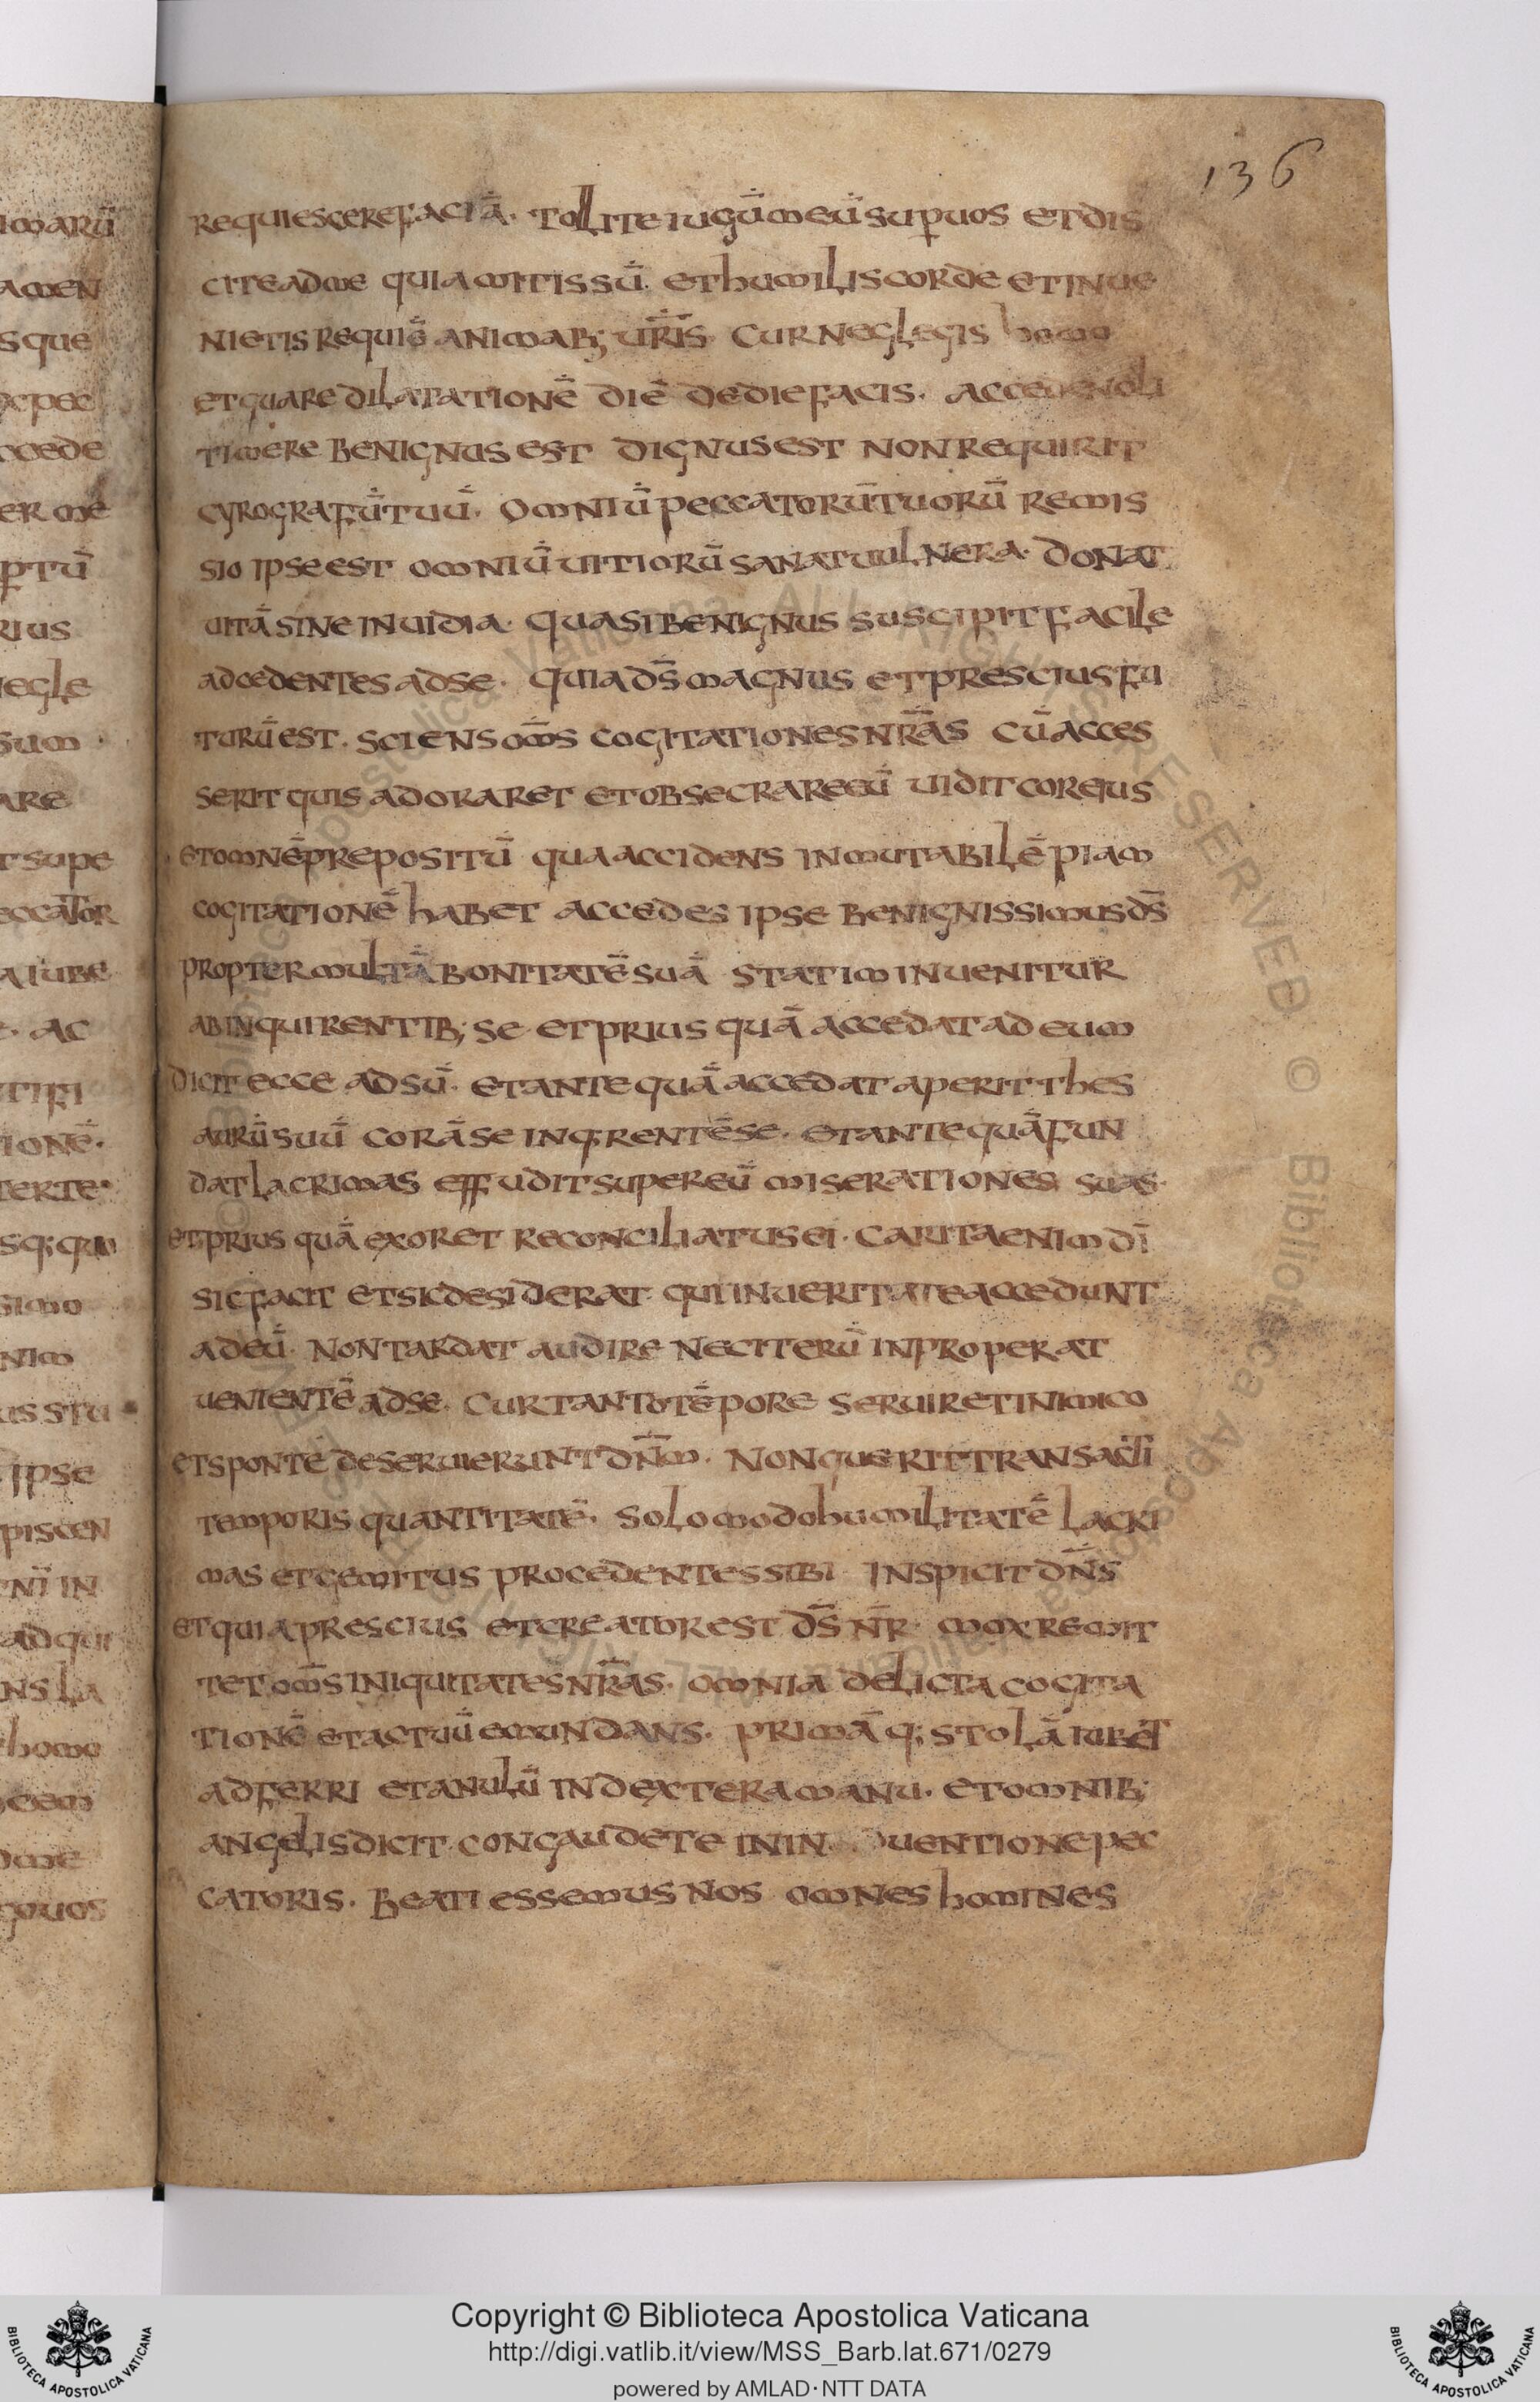 136
requiescerefaciā. tolliteiugūmeūsup̱uos etdis
citeadme quiamitissū. ethumiliscorde etinue
nietis requiē animab; ur̄is. cur neglegis homo
etquare dilatationē diē dediefacis. accede noli
timere benignus est dignusest nonrequirit
cyrografūtuū. omniū peccatorūtuorū remis
sio ipseest omniū uitiorū sanatuulnera. donat
uitāsine inuidia. quasibenignus suscipitfacile
adcedentes adse. quiads̄magnus etpresciusfu
turūest. sciensom̄s cogitationesnr̄as cūacces
serit quis adoraret etobsecrareeū uiditcoreius
etomnēprepositū quaaccidens inmutabilē piam
cogitationē habet accedes ipse benignissimusds̄
proptermultābonitatēsuā statiminuenitur
abinquirentib; se etprius quā accedatad eum
dicit ecce adsū. etantequā accedataperitthes
aurūsuū corāse inq;rentēse. etantequāfun
datlacrimas effuditsupereū miserationes suas.
etprius quā exoret reconciliatusei. caritaenim dī
sicfacit etsicdesiderat quiinueritateaccedunt
adeū. nontardat audire neciterū inproperat
uenientē adse. curtantotēpore seruiretinimico
etsponte deseruieruntdn̄m. nonquerittransacti
temporis quantitatē. solomodohumilitatē lacri
mas etgemitus procedentessibi inspicitdn̄s
etquiaprescius etcreatorest ds̄ nr̄. moxremit
tetom̄siniquitatesnr̄as. omnia delicta cogita
tionē etactuū emundans. primāq; stolā iubet
adferri etanulū indexteramanu. etomnib;
angelisdicit congaudete inin uentionepec
catoris. beati essemus nos omnes homines
imarū
amen
sque
ccede
er me
ptū
rius
negle
sum
are
tsupe
eccator
aiube
. ac
tifi
ionē.
terte
sq;quo
simo
nim
us stu
ipse
piscen
enī in
adqui
ns la
homo
cem
ome
quos
Copyright © Biblioteca Apostolica Vaticana
http://digi.vatlib.it/view/MSS_Barb.lat.671/0279
powered by AMLAD·NTT DATA
BIBLIOTECA APOSTOLICA VATICANA
BIBLIOTECA APOSTOLICA VATICANA